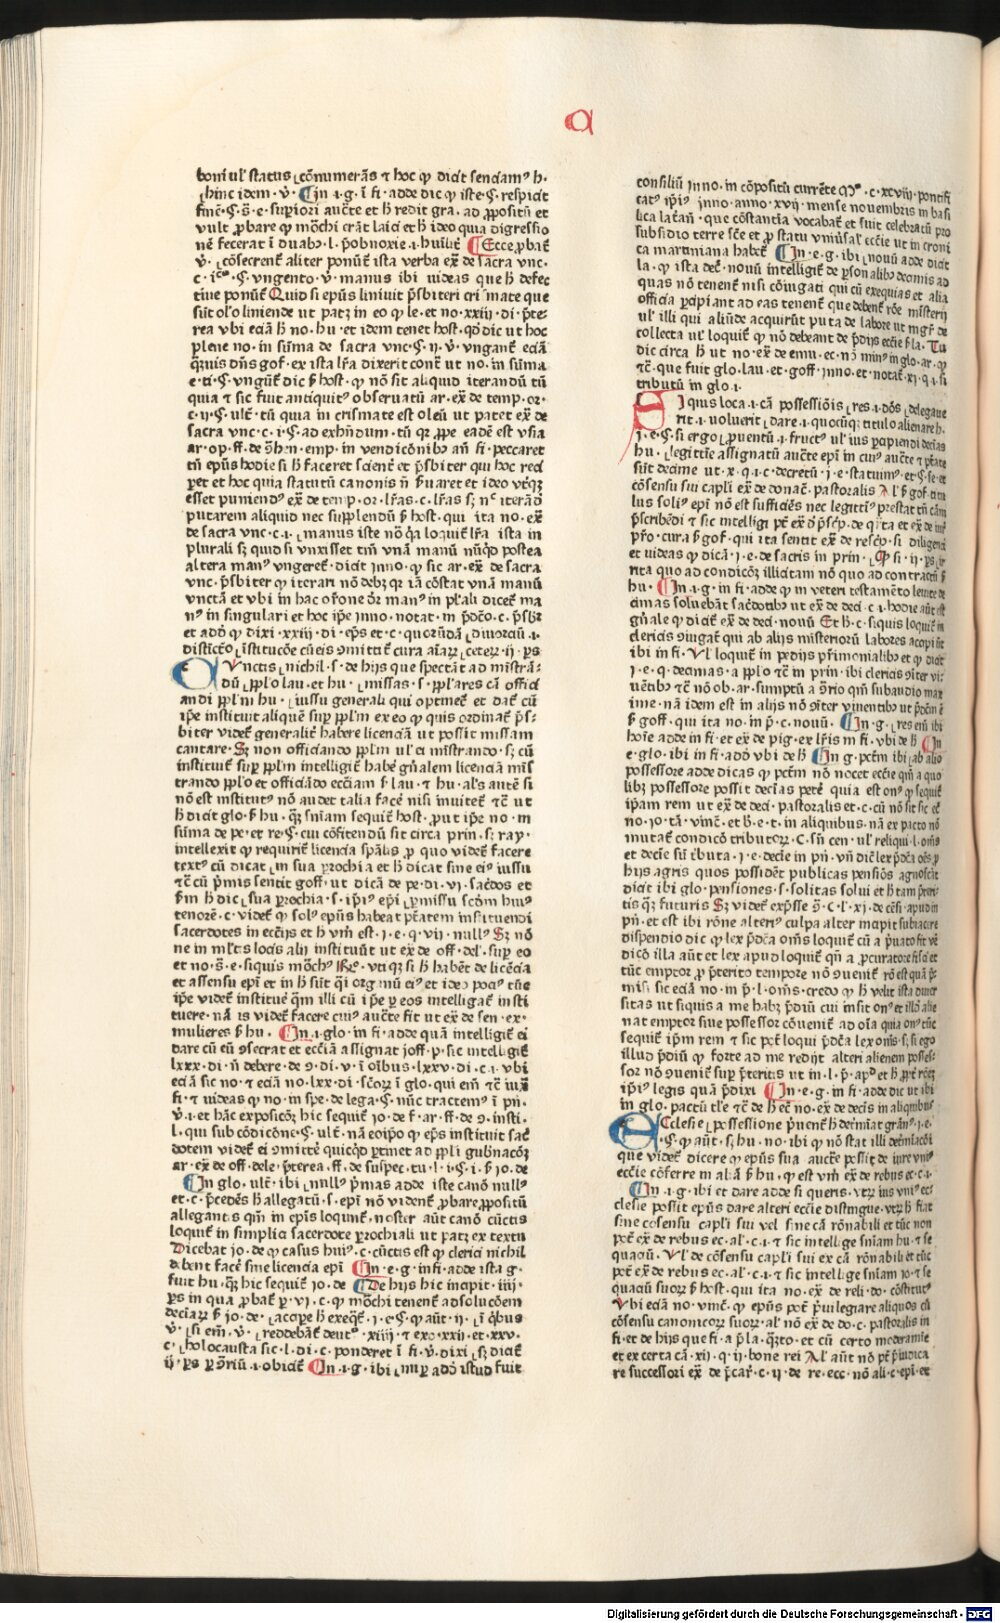 a
boni ul' status ⸤cōnumerās ⁊ hoc ꝙ dicit senciamꝰ h·
⸤hinc idem · v̄ · In ·ı· g · ī fi · adde dic ꝙ iste · § · respicit
finē · § · s̄ · e · supiori auctē et h redit gra · ad ꝓpositū et
vult ꝓbare ꝙ mōchi erāt laici et h ideo quia digressio
nē fecerat ī duabꝰ · l · p̄obnoxie · ı · Ecce ꝓbat̄
v̄ · ⸤cōsecrent aliter ponūt ista verba ex̄ de sacra vnc·
c · § · vngento · v̄ · manus ibi uideas que h defec
tiue ponūt Quid si epūs liniuit p̄sbiteri crismate que
sūt ol'o liniende ut patz in eo ꝙ le · et no · xxiij · di · p̄te·
rea vbi eciā h no · hu · et idem tenet host · qdic ut hoc
plene no · in sūma de sacra vnc · § · ıj · v̄ · vngant̄ eciā
dn̄s gof · ex ista lr̄a dixerit cont̄ ut no · in sūma
e · ti · § · vngūt̄ dic p̄ host · ꝙ nō sit aliquid iterandū tū
quia ⁊ sic fuit antiquitꝰ obseruatū ar · ex̄ de temp · or·
c · ıj · § · ult̄ · tū quia in crismate est oleū ut patet ex̄ de
sacra vnc · c · ı · § · ad exhn̄dum · tū qr ꝓpe eadē est vsia
ar · op · ff · de · emp · in vendicōnibꝰ an̄ fi · peccaret
tū epūs hodie si h faceret scient̄ et p̄sbiter qui hoc reci
ꝑet et hoc quia statutū canonis n̄ ẜuaret et ideo
esset puniendꝰ ex̄ de temp · or · lr̄as · c · lr̄as
putarem aliquid nec supplendū ẜ host · qui ita no · ex̄
de sacra vnc · c · ı · manus iste nō loquit̄ lr̄a ista in
plurali sꝫ quid si vnxisset tm̄ vnā manū postea
altera manꝰ vngeret̄ · dicit Jnno · ꝙ sic ar · ex̄ de sacra
vnc · p̄sbiter ꝙ iterari nō debz iā cōstat vnā manū
vnctā et vbi in hac or̄one dr̄ manꝰ in pl'ali dicet̄ ma
nꝰ in singulari et hoc ip̄e Jnno · notat · in p̄dc̄o · c · p̄sbr
et adō ꝙ dixi · xxiij · di · ep̄s et · c · quorūdā ⸤diuorciū ·ı·
⸤institucōe cū eis ꝯmittit̄ cura ⸤ceterꝫ · ıj · ꝑs
Cunctis ⸤nichil · s · de hijs que spectāt ad mistrā·
dū ⸤ppl'o lau · et hu · ⸤missas · s · ppl'ares cā offici
andi ppl'm hu · ⸤iussu generali qui optinet̄ et dat̄ cū
ip̄e instituit aliquē sup ppl'm ex eo ꝙ quis ordinat̄ p̄s·
biter videt̄ generalit̄ habere licenciā ut possit missam
cantare · Sꝫ non officiando ppl'm ul' ei ministrando · sꝫ cū
instituit̄ sup ppl'm intelligit̄ habe gn̄alem licenciā mis
trando ppl'o et officiādo ecc̄iam ẜ · lau · ⁊ hu · al's autē si
nō est institutꝰ nō audet talia facē nisi inuitet̄ ⁊c̄ ut
h dicit glo · ẜ hu · sn̄iam sequit̄ host · ꝓut ip̄e no · in
sūma de pe · et re · § · cui cōfitendū sit circa prin · sꝫ ray·
intellexit ꝙ requirit̄ licencia sp̄alis ꝓ quo videt̄ facere
textꝰ cū dicat ⸤in sua ꝑrochia et h dicat sine eiꝰ iussu
⁊c̄ cū p̄mis sentit goff · ut dicā de pe · di · vj · sac̄dos et
ẜm h dic ⸤sua ꝑrochia · s · ip̄iꝰ ep̄i ⸤ꝑmissu scd̄m huiꝰ
tenorē · c · videt̄ ꝙ solꝰ ep̄us habeat p̄tatem instituendi
sacerdotes in ecc̄ijs et h vm̄ est · j · e · q · vij · nullꝰ Sꝫ nō
ne in ml'tis locis alij instituūt ut ex̄ de off · del' · sup eo
et no · s̄ · e · si quis mōchꝰ Rº · vtiqꝫ si h habent̄ de licēcia
et assensu ep̄i et in h sūt organū eiꝰ et ideo pociꝰ tūc
ip̄e videt̄ instituē qm̄ illi cū ip̄e ꝑ eos intelligat̄ insti
tuere · nā is videt̄ facere cuiꝰ auctē fit ut ex̄ de sen · ex·
mulieres ẜ hu · In · ı · glo · in fi · adde quā intelligit̄ ei
dare cū eū ꝯsecrat et ecc̄iā assignat joff · p · sic intelligit̄
lxxx · di · n̄ debere · de ꝯ · di · v · ī oībus · lxxv · di · c · ı · vbi
eciā sic no · ⁊ eciā no · lxx · di · ī glo · qui em̄ ⁊c̄
fi · ⁊ uideas ꝙ no · in spe · de lega · § · nūc tractemꝰ ī pn̄·
v̄ · ı · et hāc exposicōꝫ hic sequit̄ jo · de f · ar · ff · de ꝯ · insti·
l · qui sub cōdicōne · § · ult̄ · nā eo ip̄o ꝙ ep̄s instituit sac̄
dotem videt̄ ei ꝯmittē quicqd ꝑtinet ad ppl'i gubnacōꝫ
ar · ex̄ de off · dele · p̄terea · ff · de suspec · tu · l · ı · § · ı · ẜ jo · de
In glo · ult̄ · ibi ⸤nullꝰ p̄mas adde iste canō nullꝰ
et · c · p̄cedēs h allegatū · s · ep̄i nō vident̄ ꝓbare ꝓpositū
allegantis qm̄ in ep̄is loquit̄ · noster aūt canō cūctis
loquit̄ in simplici sacerdote ꝑrochiali ut patz ex textu
Dicebat jo · de ꝙ casus huiꝰ · c · cūctis est ꝙ clerici nichil
debent facē sine licencia ep̄i In · e · g · in fi · adde ista g·
fuit hu · hic sequit̄ jo · de De hijs hic incipit · iiij·
ꝑs in qua ꝓbat̄ ꝑ · vj · c · ꝙ mōchi tenent̄ ad solucōem
decimarꝫ ẜ jo · de · ⸤accipe h exeqēt̄ · j · e · § · ꝙ aūt · ıj ·
v̄ · ⸤si em̄ · v̄ · ⸤reddebāt̄ deutº xiiij · ⁊ exo · xxii · et · xxv·
c · ⸤holocausta sic · l · di · c · ponderet ī fi · v̄ · dixi ⸤sꝫ dicat̄
ıj · ꝑs ꝑ ꝯriū · ı · obicit̄ In · ı · g · ibi ⸤nup adō istud fuit
consiliū Jnno · in cōpositū currēte Mº · c · xcviij · pontifi
catꝰ ip̄iꝰ jnno · anno · xvij · mense nouembris in basi
lica latān̄ · que cōstantia vocabat̄ et fuit celebratū pro
subsidio terre sc̄e et ꝓ statu vniūsal' ecc̄ie ut in croni
ca martiniana habet̄ In · e · g · ibi ⸤nouū adde dicit
la · ꝙ ista dec̄ · nouū intelligit̄ de ꝑsonalibꝰ decimis ad
quas nō tenent̄ nisi cōiugati qui cū exequias et alia
officia ꝑcipiant ad eas tenent̄ que debent̄ rōe misterij
ul' illi qui aliūde acquirūt puta de labore ut mgr̄ de
collecta ul' loquit̄ ꝙ nō debeant̄ de p̄dijs ecc̄ie ẜ la · Tu
dic circa h ut no · ex̄ de emu · ec · nō minꝰ in glo · ar · ꝙ
⁊c̄ · que fuit glo · lau · et · goff · jnno · et · notat̄ · xj · q · ı · si
tributū in glo · ı·
Si quis loca · ı · cā possessiōis ⸤res · ı · dōs ⸤delegaue
rit · ı · voluerit ⸤dare · ı · quocūqꝫ titulo alienare h·
j · e · § · si ergo ⸤ꝓuentū · ı · fructꝰ ul' ius ꝑcipiendi decīas
hu · ⸤legittīe assignatū auctē ep̄i in cuiꝰ auctē ⁊ p̄tate
sūt decime ut · x · q · ı · c · decretū · j · e · statuimꝰ · et § · se · et
cōsensu sui capl'i ex̄ de donac̄ · pastoralis A l' ẜ gof · titu
lus soliꝰ ep̄i nō est sufficiēs nec legittīꝰ prestat tn̄ cām
p̄scribēdi ⁊ sic intelligi pt̄ ex̄ de p̄scp̄ · de q̄rta et ex̄ de in̄
pfo · cura ẜ gof · qui ita sentit ex̄ de resc̄p · si diligenti
et uideas ꝙ dicā · j · e · de sacris in prin · ꝙ si · ıj · ꝑs ir
rita quo ad condicōꝫ illicitam nō quo ad contractū ẜ
hu · In · ı · g · in fi · adde ꝙ in veteri testamēto leuite de
cimas soluebāt sac̄dotibꝰ ut ex̄ de deci · c · ı · hodie aūt est
gn̄ale ꝙ dicit̄ ex̄ de deci · nouū Et h · c · si quis loquit̄ in
clericis ꝯiugatꝰ qui ab alijs misteriorū labores accipiūt
ibi in fi · Ul' loquit̄ in predijs pr̄imonialibꝰ et ꝙ dicit̄
j · e · q · decimas · a ppl'o ⁊c̄ in prin · ibi clericis ꝯiter vi·
uētibꝰ ⁊c̄ nō ob · ar · sumptū a ꝯrio qm̄ subaudio max
ime · nā idem est in alijs nō ꝯiter viuentibꝰ ut p̄dōm ē
ẜ goff · qui ita no · in p̄ · c · nouū · In · g · ⸤res em̄ ibi
hoīe adde in fi · et ex̄ de pig · ex lr̄is in fi · vbi de h In
e · glo · ibi in fi · adō vbi de h In g · pctm̄ ibi ⸤ab alio
possessore adde dicas ꝙ pctm̄ nō nocet ecc̄ie qm̄ a quo
libꝫ possessore possit decīas petē quia est onꝰ ꝙ sequit̄
ip̄am rem ut ex̄ de deci · pastoralis et · c · cū nō sit sic et̄
no · jo · tā · vinc̄ · et h · e · t · in aliquibus · nā ex pacto nō
mutat̄ condicō tributorꝫ · C · sn̄ cen · ul' reliqui · l · oīs
et decīe sūt t̄buta · j · e · decīe in pn̄ · vn̄ dic̄ lex p̄dc̄a oēs ꝓ
hijs agris quos possidēt publicas pensiōs agnoscāt
dicit ibi glo · pensiones · s · solitas solui et h tam p̄teri·
tis qꝫ futuris Sꝫ videt̄ expsse ꝯ · C · l' · xj · de cēsi · apud in
pn̄ · et est ibi rōne alteriꝰ culpa alter incipit subiacere
dispendio dic ꝙ lex p̄dc̄a oīs loquit̄ cū a puato fit vē
dicō illa aūt et lex apud loquit̄ qn̄ a ꝓcuratore fisci et
tūc emptor ꝓ p̄terito tempore nō ꝯuenit̄ rō est quā p̄·
misi sic eciā no · in p̄ · l · oms · credo ꝙ h velit ista diuer
sitas ut si quis a me habꝫ p̄diū cui insit onꝰ et illō alie
nat emptor siue possessor cōuenit̄ ad oīa quia onꝰ tūc
sequit̄ ip̄m rem ⁊ sic pōt loqui p̄dc̄a lex oms · sꝫ si ego
illud p̄diū ꝙ forte ad me redijt alteri alienem posses·
sor nō ꝯuenit̄ sup p̄teritis ut in · l · p̄ · apd̄
ip̄iꝰ legis quā p̄dixi In · e · g · in fi · adde dic ut ibi
in glo · pactū tl'e ⁊c̄ de h ec̄ no · ex̄ de decīs in aliquibus
Ecclesie ⸤possessione p̄uent̄ h det̄miat granꝰ · j · e·
§ · ꝙ aūt · sꝫ hu · no · ibi ꝙ nō stat illi det̄miacōi
que videt̄ dicere ꝙ ep̄us sua auctē possit de iure vniꝰ
ecc̄ie cōferre in aliā ẜ hu · ꝙ est vm̄ ex̄ de rebus ec · c · ı·
In · ı · g · ibi et dare adde si queris · vtrꝫ ius vniꝰ ec·
clesie possit ep̄us dare alteri ecc̄ie distingue · vtrꝫ h fiat
sine cōsensu capl'i sui vel sine cā rōnabili et tūc non
pōt ex̄ de rebus ec · al' · c · ı · ⁊ sic intellige sn̄iam hu · ⁊ se
quaciū · Ul' de cōsensu capl'i sui ex cā rōnabili et tūc
pōt ex̄ de rebus ec · al' · c · ı · ⁊ sic intellige sn̄iam jo · ⁊ se
quaciū suorꝫ ẜ host · qui ita no · ex̄ de reli · do · cōstitutꝰ
Vbi eciā no · vinc̄ · ꝙ ep̄us pōt p̄uilegiare aliquos cū
cōsensu canonicorꝫ suorꝫ · al' nō ex̄ de do · c · pastoralis in
fi · et de hijs que fi · a p̄la · q̄rto · et cū certo moderamīe
et ex certa cā · xij · q · ıj · bone rei A l' aūt nō pt̄ p̄iudica
re successori ex̄ de p̄car̄ · c · ıj · de re · ecc · nō ali · c · ep̄i · et
Digitalisierung gefördert durch die Deutsche Forschungsgemeinschaft - DFG